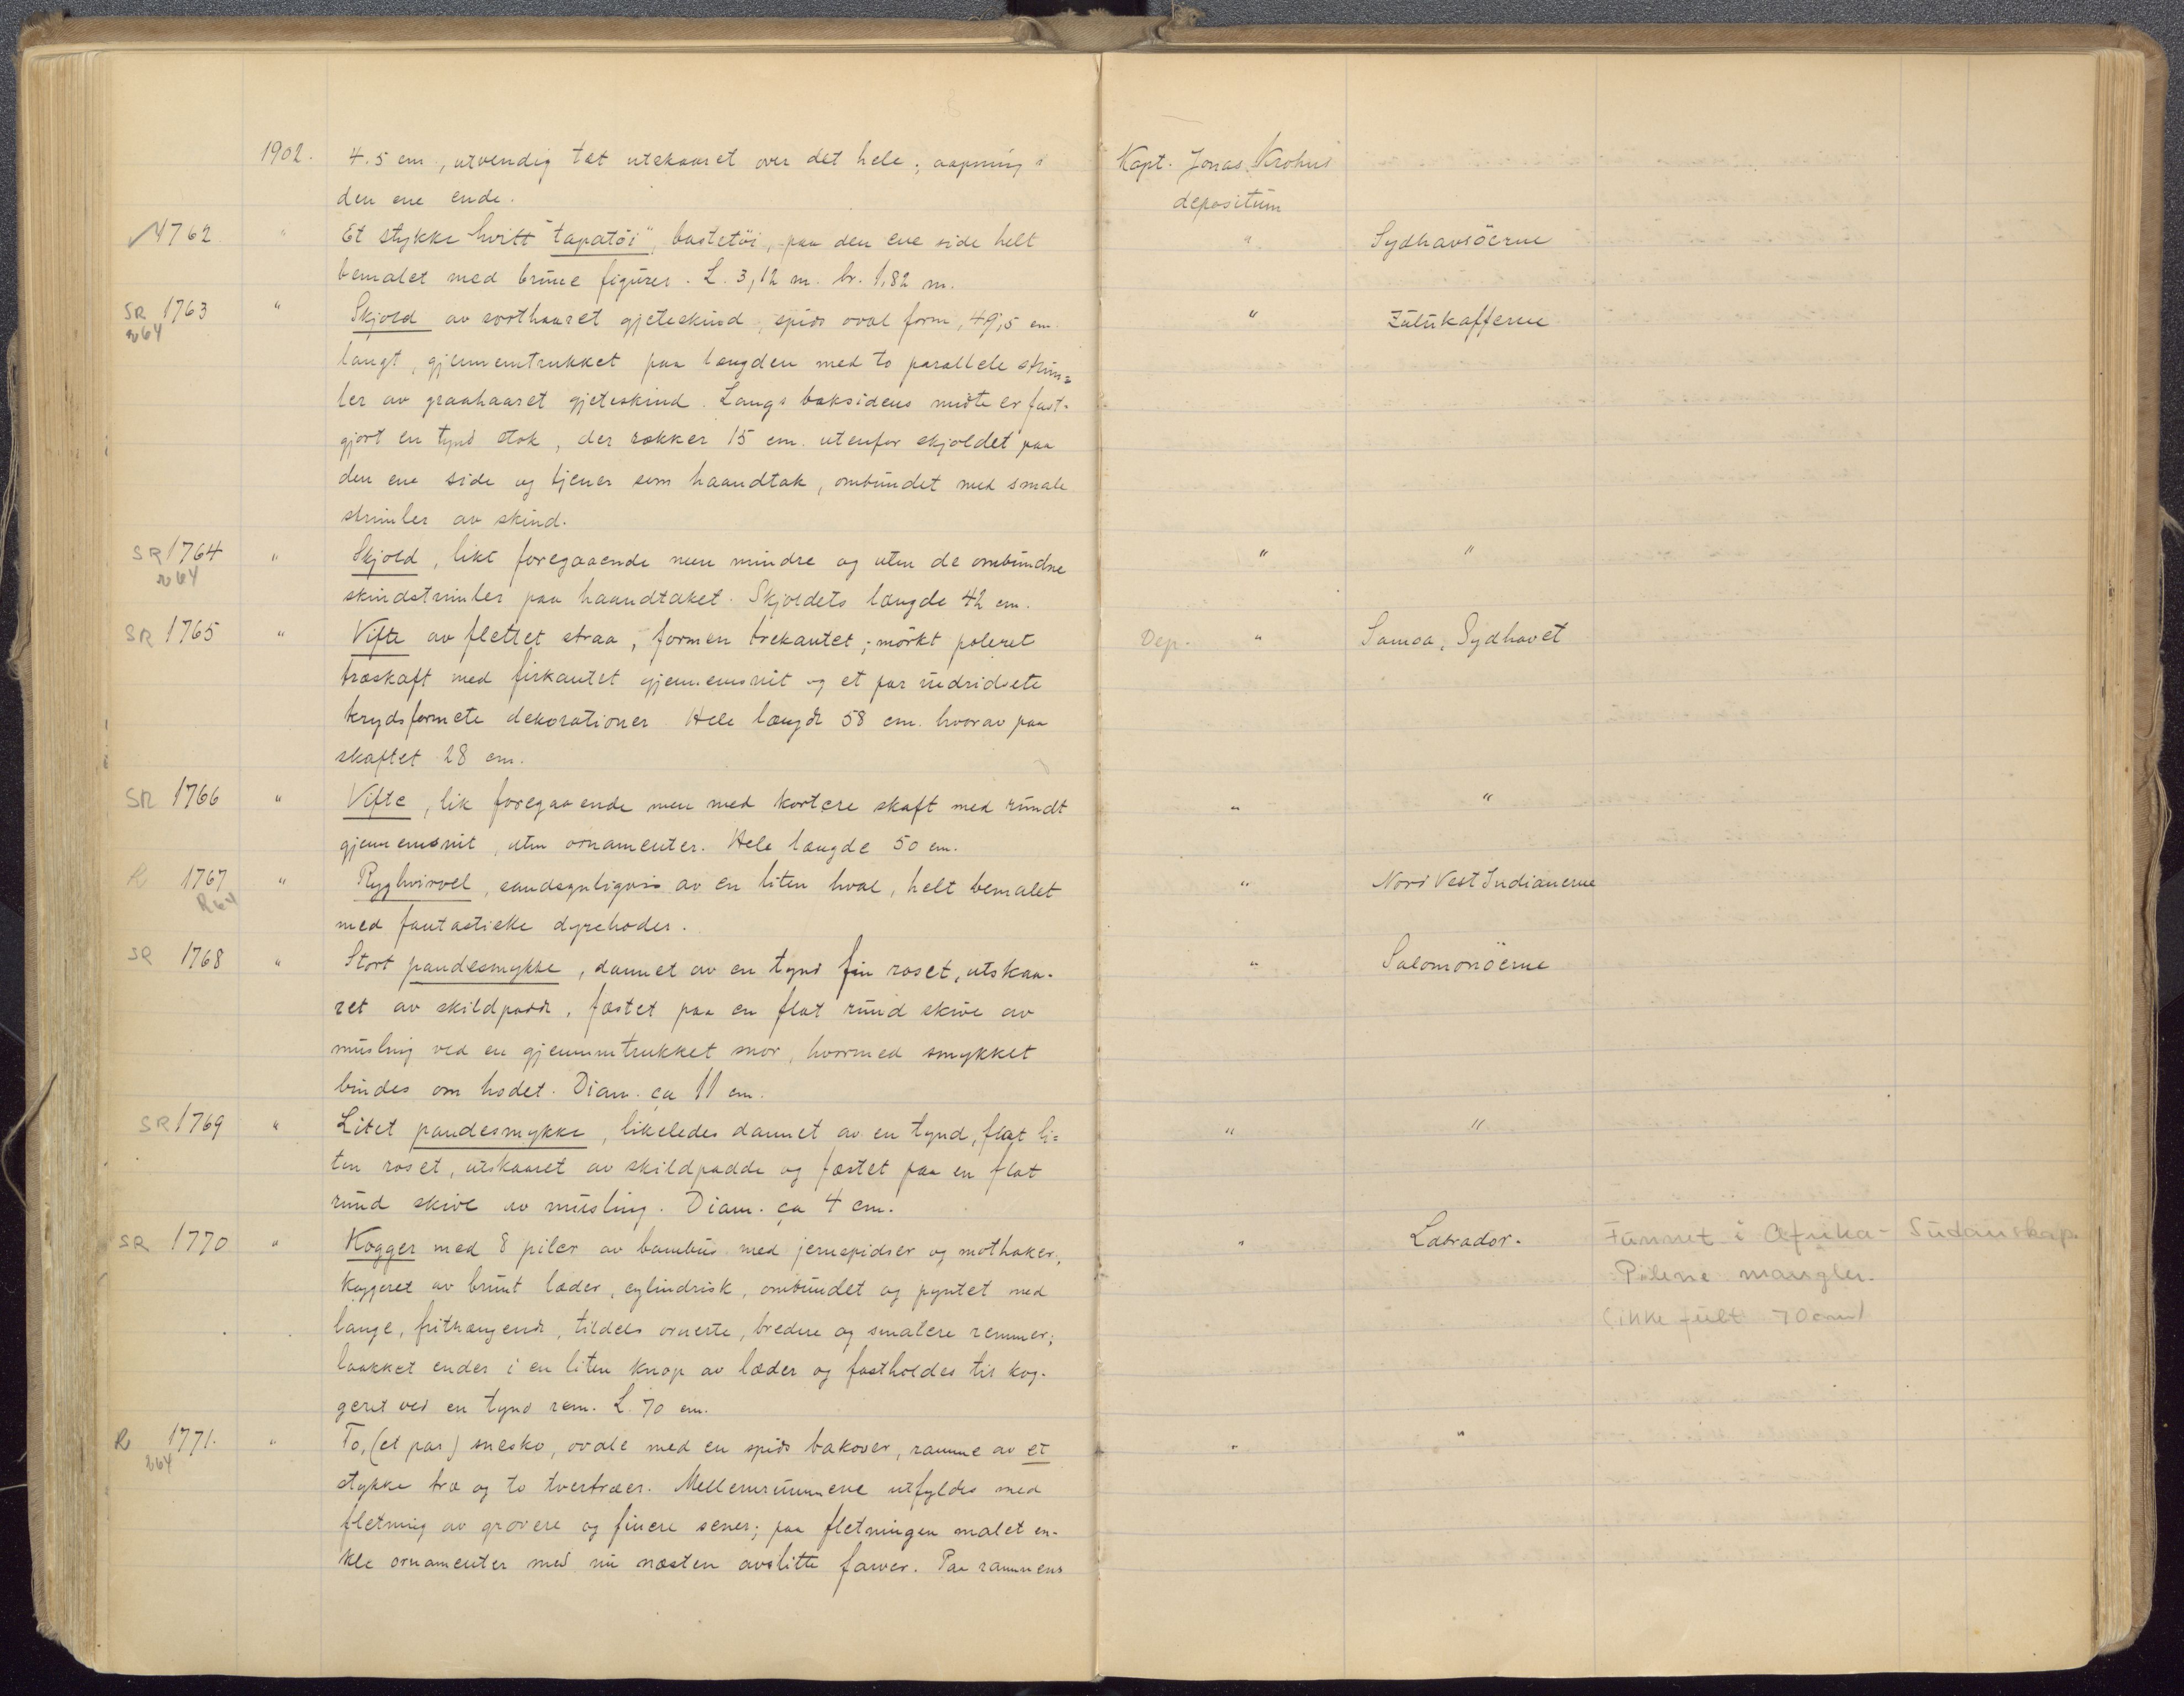 1902. 4.5 cm., utvendig tæt utskaaret over det hele; aapning i Kapt. Jonas Krohns
den ene ende. depositum
1762 " Et stykke hvitt "tapatöi", bastetöi, paa den ene side helt " Sydhavsöerne
bemalet med brune figurer. L. 3,12 m. br. 1,82 m.
SR 1763 " Skjold av sorthaaret gjeteskind, spids oval form, 49,5 cm " Zulukafferne
r64
langt, gjennemtrukket paa længden med to parallele strim=
ler av graahaaret gjeteskind. Langs baksidens midte er fast-
gjort en tynd stok, der rækker 15 cm. utenfor skjoldet paa
den ene side og tjener som haandtak, ombundet med smale
strimler av skind.
SR 1764 " Skjold, likt foregaaende men mindre og uten de ombundne " "
r64
skindstrimler paa haandtaket. Skjoldets længde 42 cm.
SR 1765 " Vifte av flettet straa, formen trekantet; mörkt poleret Dep. " Samoa, Sydhavet
træskaft med firkantet gjennemsnit og et par indridsete
krydsformete dekorationer. Hele længde 58 cm. hvorav paa
skaftet 28 cm.
SR 1766 " Vifte, lik foregaaende men med kortere skaft med rundt " "
gjennemsnit, uten ornamenter. Hele længde 50 cm.
R 1767 " Ryghvirvel, sandsynligvis av en liten hval, helt bemalet " Nord Vest Indianerne
R64
med fantastiske dyrehoder.
SR 1768 " Stort pandesmykke, dannet av en tynd fin roset, utskaa- " Salomonöerne
ret av skildpadde, fæstet paa en flat rund skive av
musling ved en gjennemtrukket snor, hvormed smykket
bindes om hodet. Diam. ca 11 cm.
SR 1769 " Litet pandesmykke, likeledes dannet av en tynd, flat li= " "
ten roset, utskaaret av skildpadde og fæstet paa en flat
rund skive av musling. Diam. ca 4 cm.
SR 1770 " Kogger med 8 piler av bambus med jernspidser og mothaker, " Labrador. Funnet i Afrika - Sudanskap.
koggeret av brunt læder, cylindrisk, ombundet og pyntet med Pilene mangler.
lange, frithængende, tildels ornerte, bredere og smalere remmer; (ikke fullt 70 cm)
laakket ender i en liten knop av læder og fastholdes til kog-
geret ved en tynd rem. L. 70 cm.
R 1771. " To, (et par) snesko, ovale med en spids bakover, ramme av et " "
r64
stykke træ og to tvertræer. Mellemrummene utfyldes med
fletning av grovere og finere sener; paa fletningen malet en-
kle ornamenter med nu næsten avslitte farver. Paa rammens